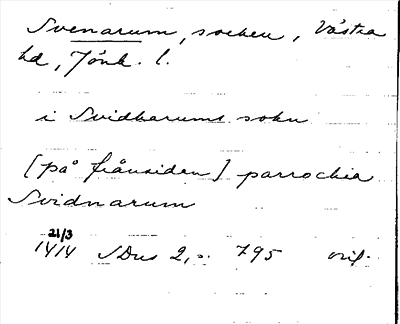 Svenarum, socken, Västra
hd, Jönk. l.
i Svidharums sokn
[på frånsidan] parrochia
Svidnarum
21/3
1414 SDns 2, s. 795 orig.